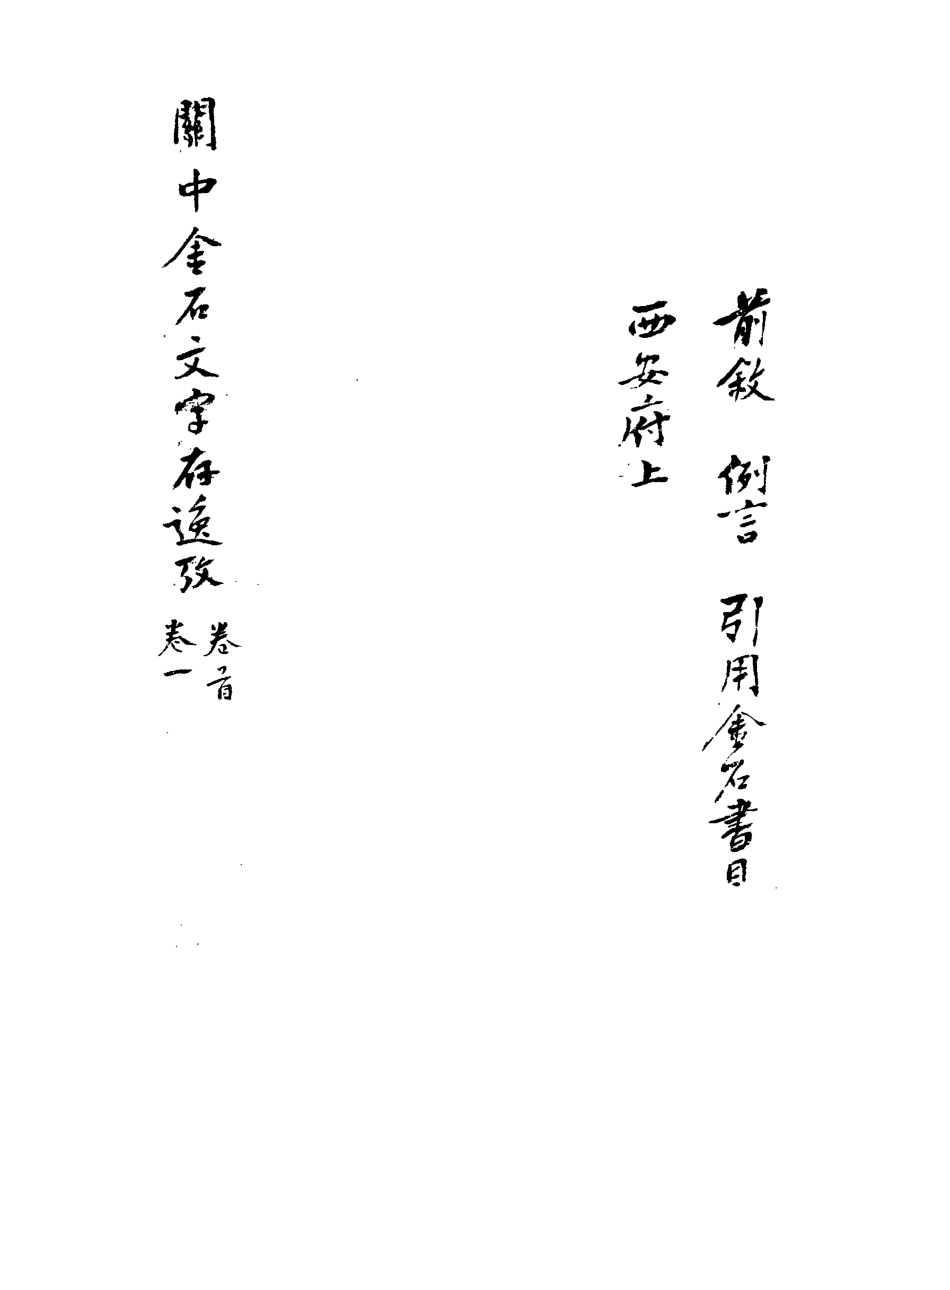 前敘　例言　引用金石書目
西安府上
關中金石文字存逸攷
卷首
卷一